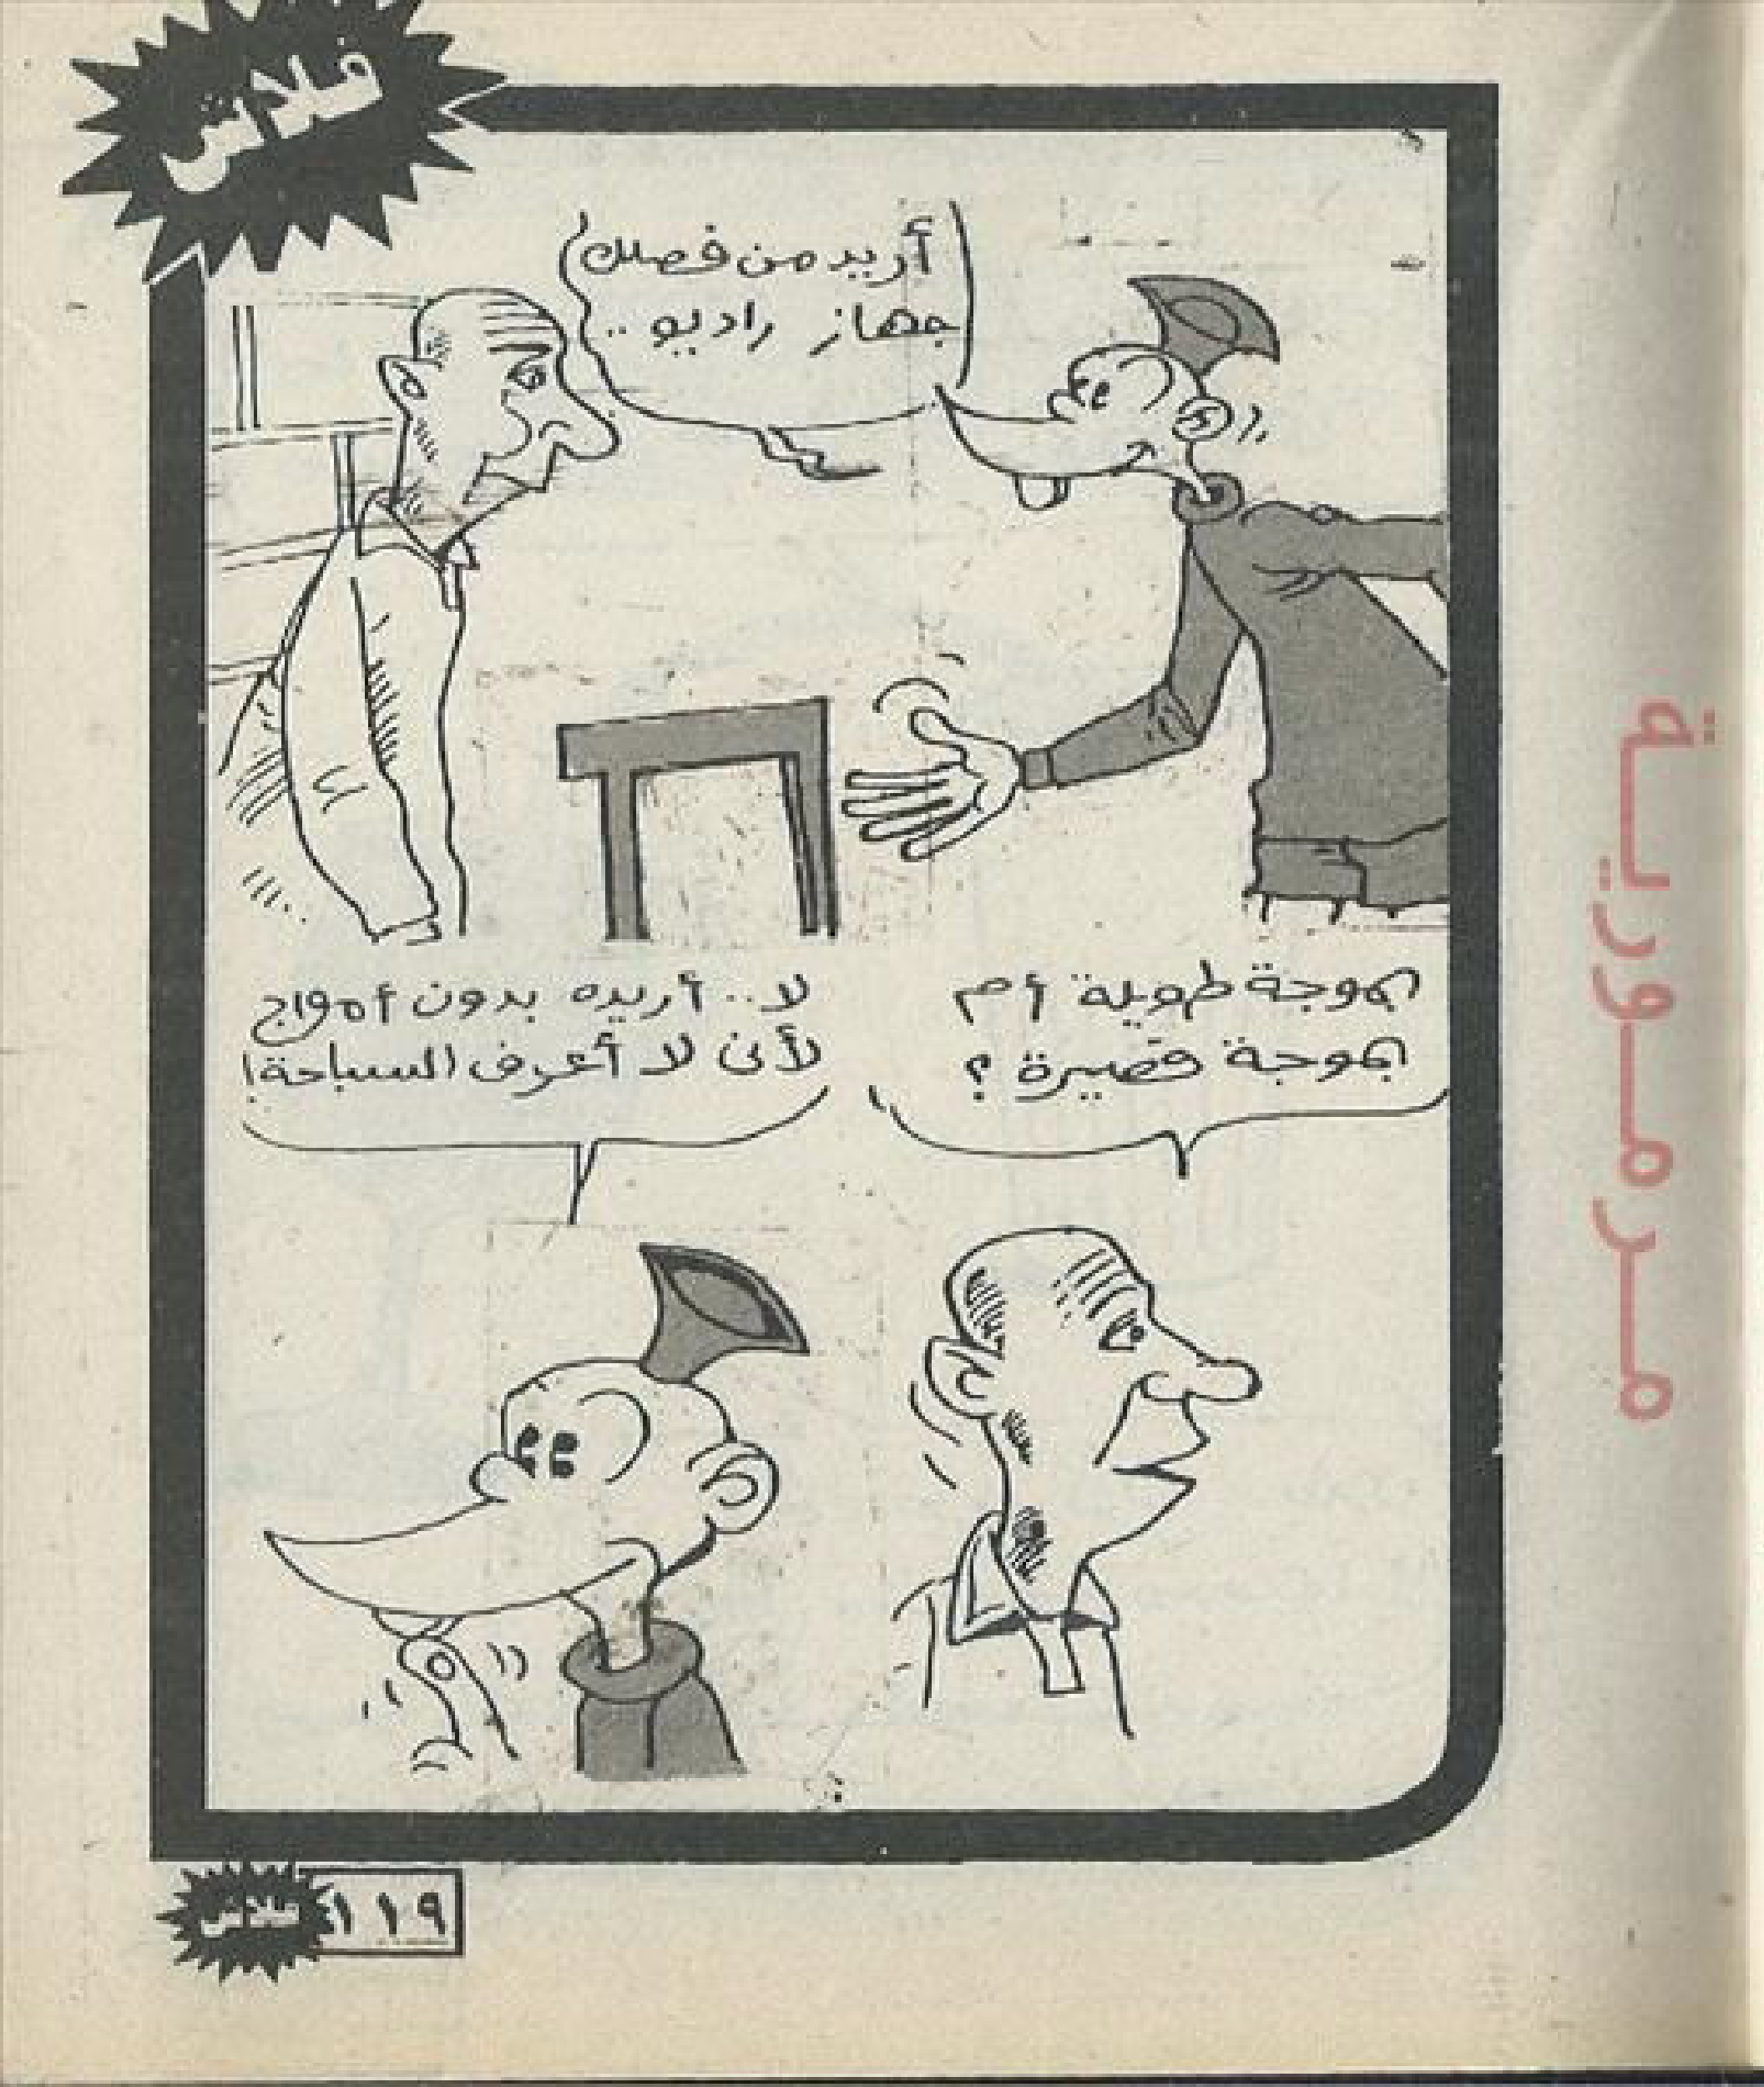 فلاش
أريد من فضلك
جهاز راديو..
بموجة طويلة أم
بموجة قصيرة؟
لا.. أريده بدون أمواج
لأنى لا أعرف السباحة!
مرمورية
فلاش
١١٩